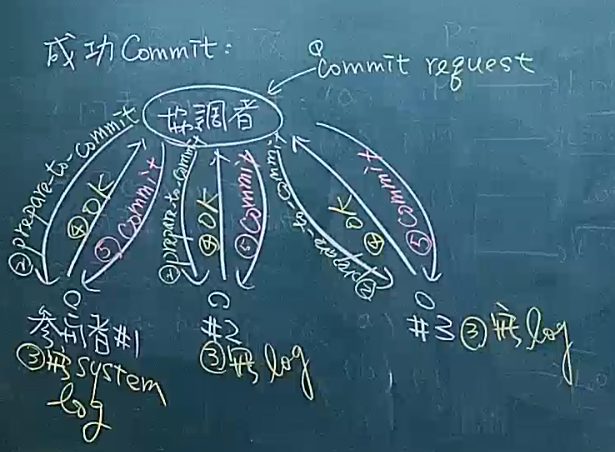 成功Commit:
① commit request
協調者
② prepare-to-commit
④ OK
⑤ commit
② prepare-to-commit
④ OK
⑤ commit
② prepare to commit
④ OK
⑤ commit
參與者#1
③ system
log
#2
③ log
#3 ③ log